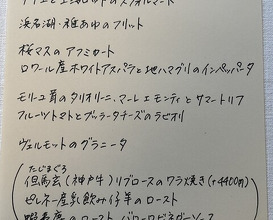 浜名湖・稚あゆのフリット
桜マスのアフミカート
ロワール産ホワイトアスパラと地ハマグリのインペッパータ
モリーユ茸のタリオリーニ、マーレ エ モンティとサマートリュフ
フルーツトマトとブッラータチーズのラビオリ
ヴェルモットのグラニータ
たじまぐろ
但馬玄(神戸牛)リブロースのワラ焼き(+4400円)
ピレネー産乳飲み仔羊のロースト
のロースト